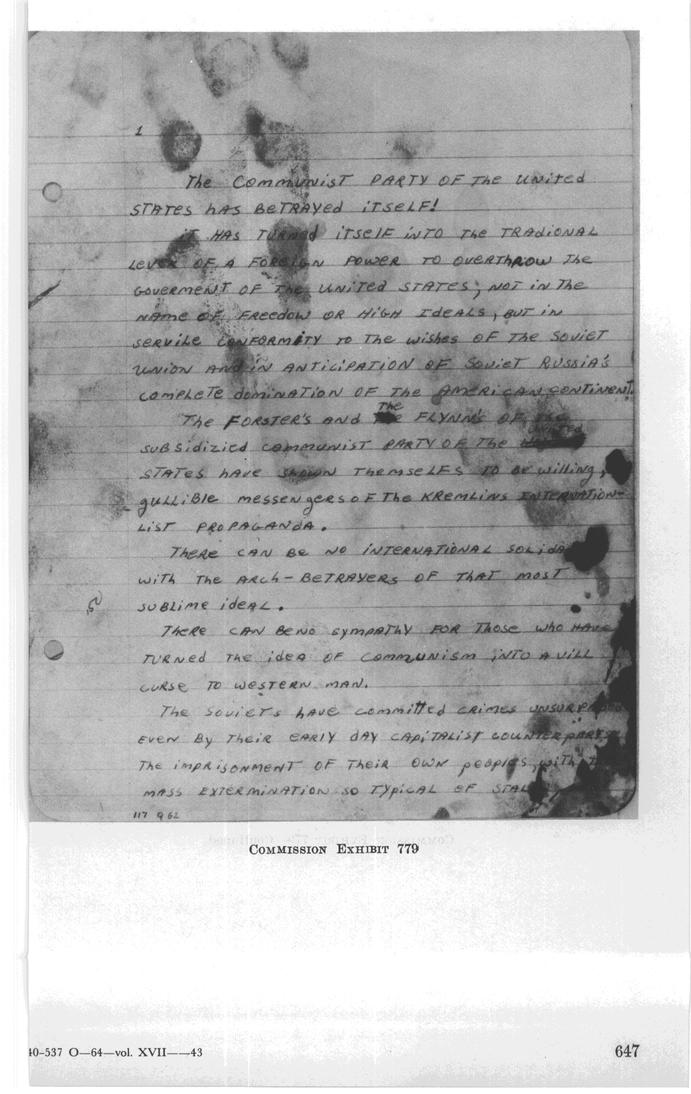 1
The COMMUNIST PARTY OF The UNITED
STATES HAS BETRAYED ITSELF!
IT HAS TURNED ITSELF INTO The TRADIONAL
LEVER OF A FOREIGN POWER TO OVERTHROW The
GOVERMENT OF The UNITED STATES; NOT IN The
NAME OF FREEDOM OR HIGH IDEALS, BUT IN
SERVILE CONFORMITY TO The wishes OF The SOVIET
UNION AND IN ANTICIPATION OF SOVIET RUSSIA'S
COMPLETE DOMINATION OF The AMERICAN CONTINENT.
The FORSTER'S AND The FLYNN'S OF The
SUBSIDIZIED COMMUNIST PARTY OF The UNITED
STATES have SHOWN THEMSELFS TO BE willing,
gullible messengers OF The KREMLINS INTERNATION-
LIST PROPAGANDA.
THERE CAN BE NO INTERNATIONAL SOLIDA
WITH The ARCH-BETRAYERS OF THAT MOST
SUBLIME IDEAL.
THERE CAN BE NO sympATHY FOR Those who HAVE
TURNED The IDEA OF COMMUNISM INTO A VILL
CURSE TO WESTERN MAN.
The SOVIETS have committed CRIMES UNSURPASSED
EVEN BY Their EARLY DAY CAPITALIST COUNTERPARTS,
The IMPRISONMENT OF Their OWN peoples, with
MASS EXTERMINATION SO TYPICAL OF STAL
117 962
COMMISSION EXHIBIT 779
40-537 O—64—vol. XVII——43
647